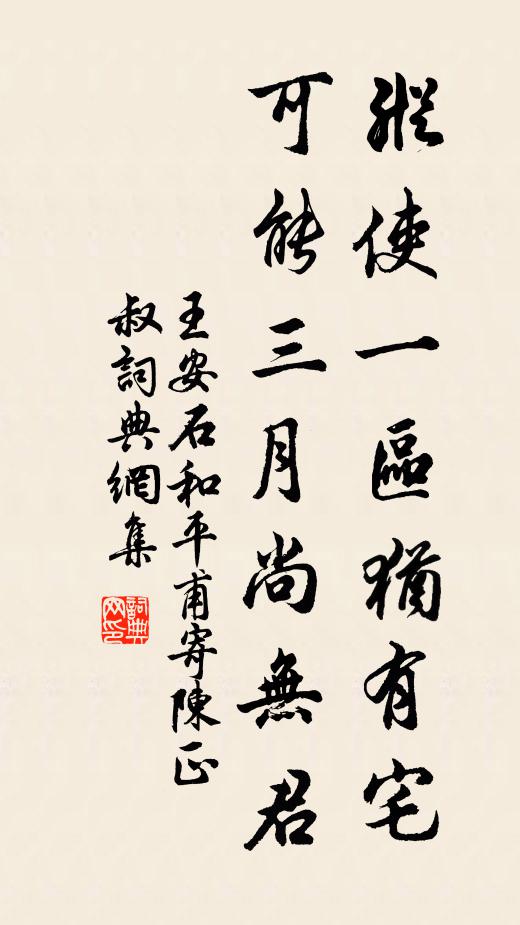 縱使一區猶有宅
可能三月尚無君
王安石和平甫寄陳正
叔詞典網集
詞典网印